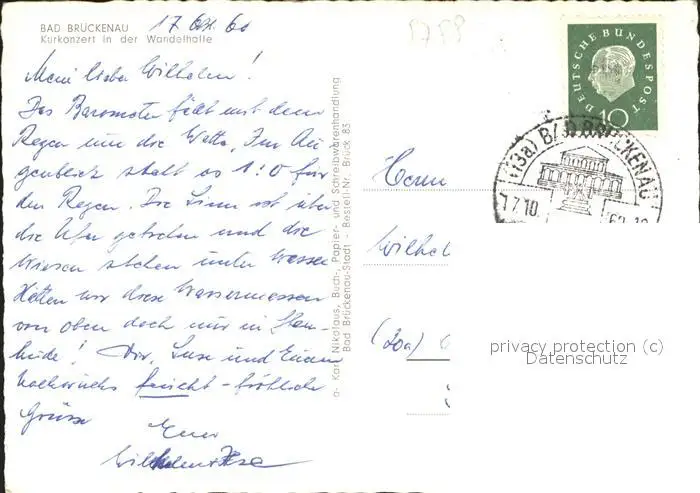 BAD BRÜCKENAU
Kurkonzert in der Wandelhalle
17 Okt. 60
Mein lieber Wilhelm!
Das Barometer fällt mit dem
Regen um die Wette. Im Au-
genblick steht es 1:0 für
den Regen. Die Sinn ist über
die Ufer getreten und die
Wiesen stehen unter Wasser
Hätten wir diese Wassermassen
von oben doch nur in
heide! Dir, Luse und Euren
feucht-fröhliche
Grüsse
Euer
Wilhelm
a. Karl Nikolaus, Buch-, Papier- und Schreibwarenhandlung
Bad Brückenau-Stadt · Bestell-Nr. Brück 83
DEUTSCHE BUNDESPOST
10
(13a) BAD BRÜCKENAU
17.10.
Herrn
Wilhel
(20a)
privacy protection (c)
Datenschutz